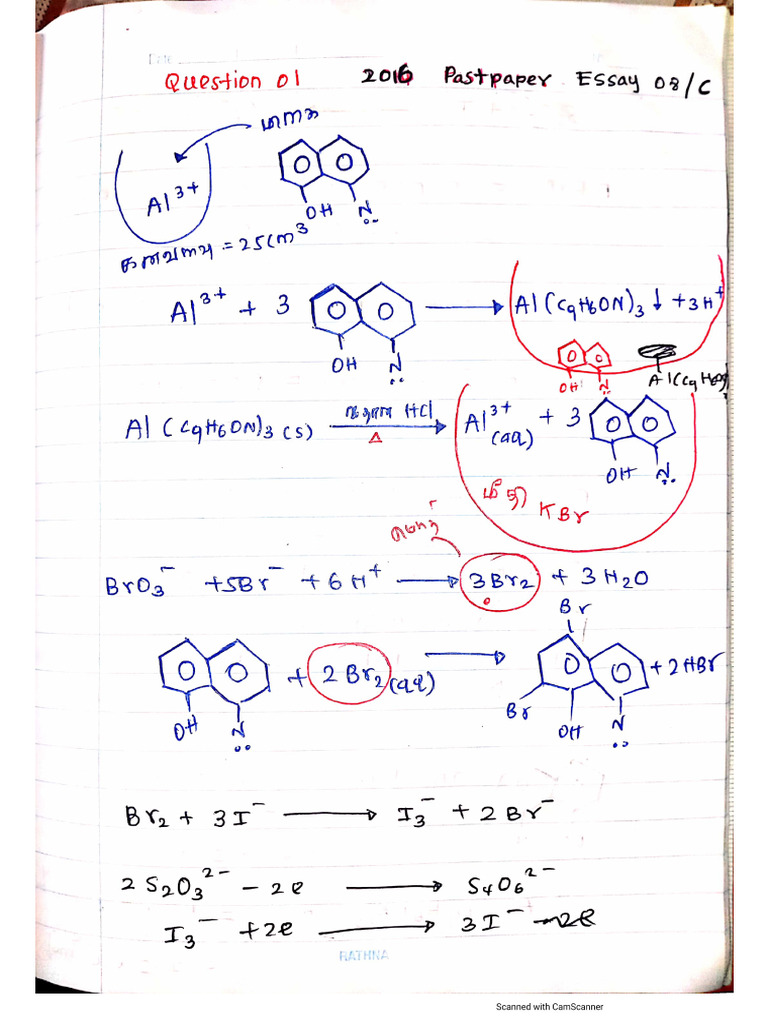 Question 01 2016 Pastpaper Essay 08/C
Al³⁺
OH N̤
= 25cm³
Al³⁺ + 3 OH N̤ ⟶ Al(C9H6ON)3 ↓ + 3H⁺
OH N
Al(C9H6ON)3 (s) HCl Δ ⟶ Al³⁺ (aq) + 3 OH N̤
மீதி KBr
BrO3⁻ + 5Br⁻ + 6H⁺ ⟶ 3Br2 + 3H2O
OH N̤ + 2Br2(aq) ⟶ Br Br OH N̤ + 2HBr
Br2 + 3I⁻ ⟶ I3⁻ + 2Br⁻
2S2O3²⁻ - 2e ⟶ S4O6²⁻
I3⁻ + 2e ⟶ 3I⁻
RATHNA
Scanned with CamScanner